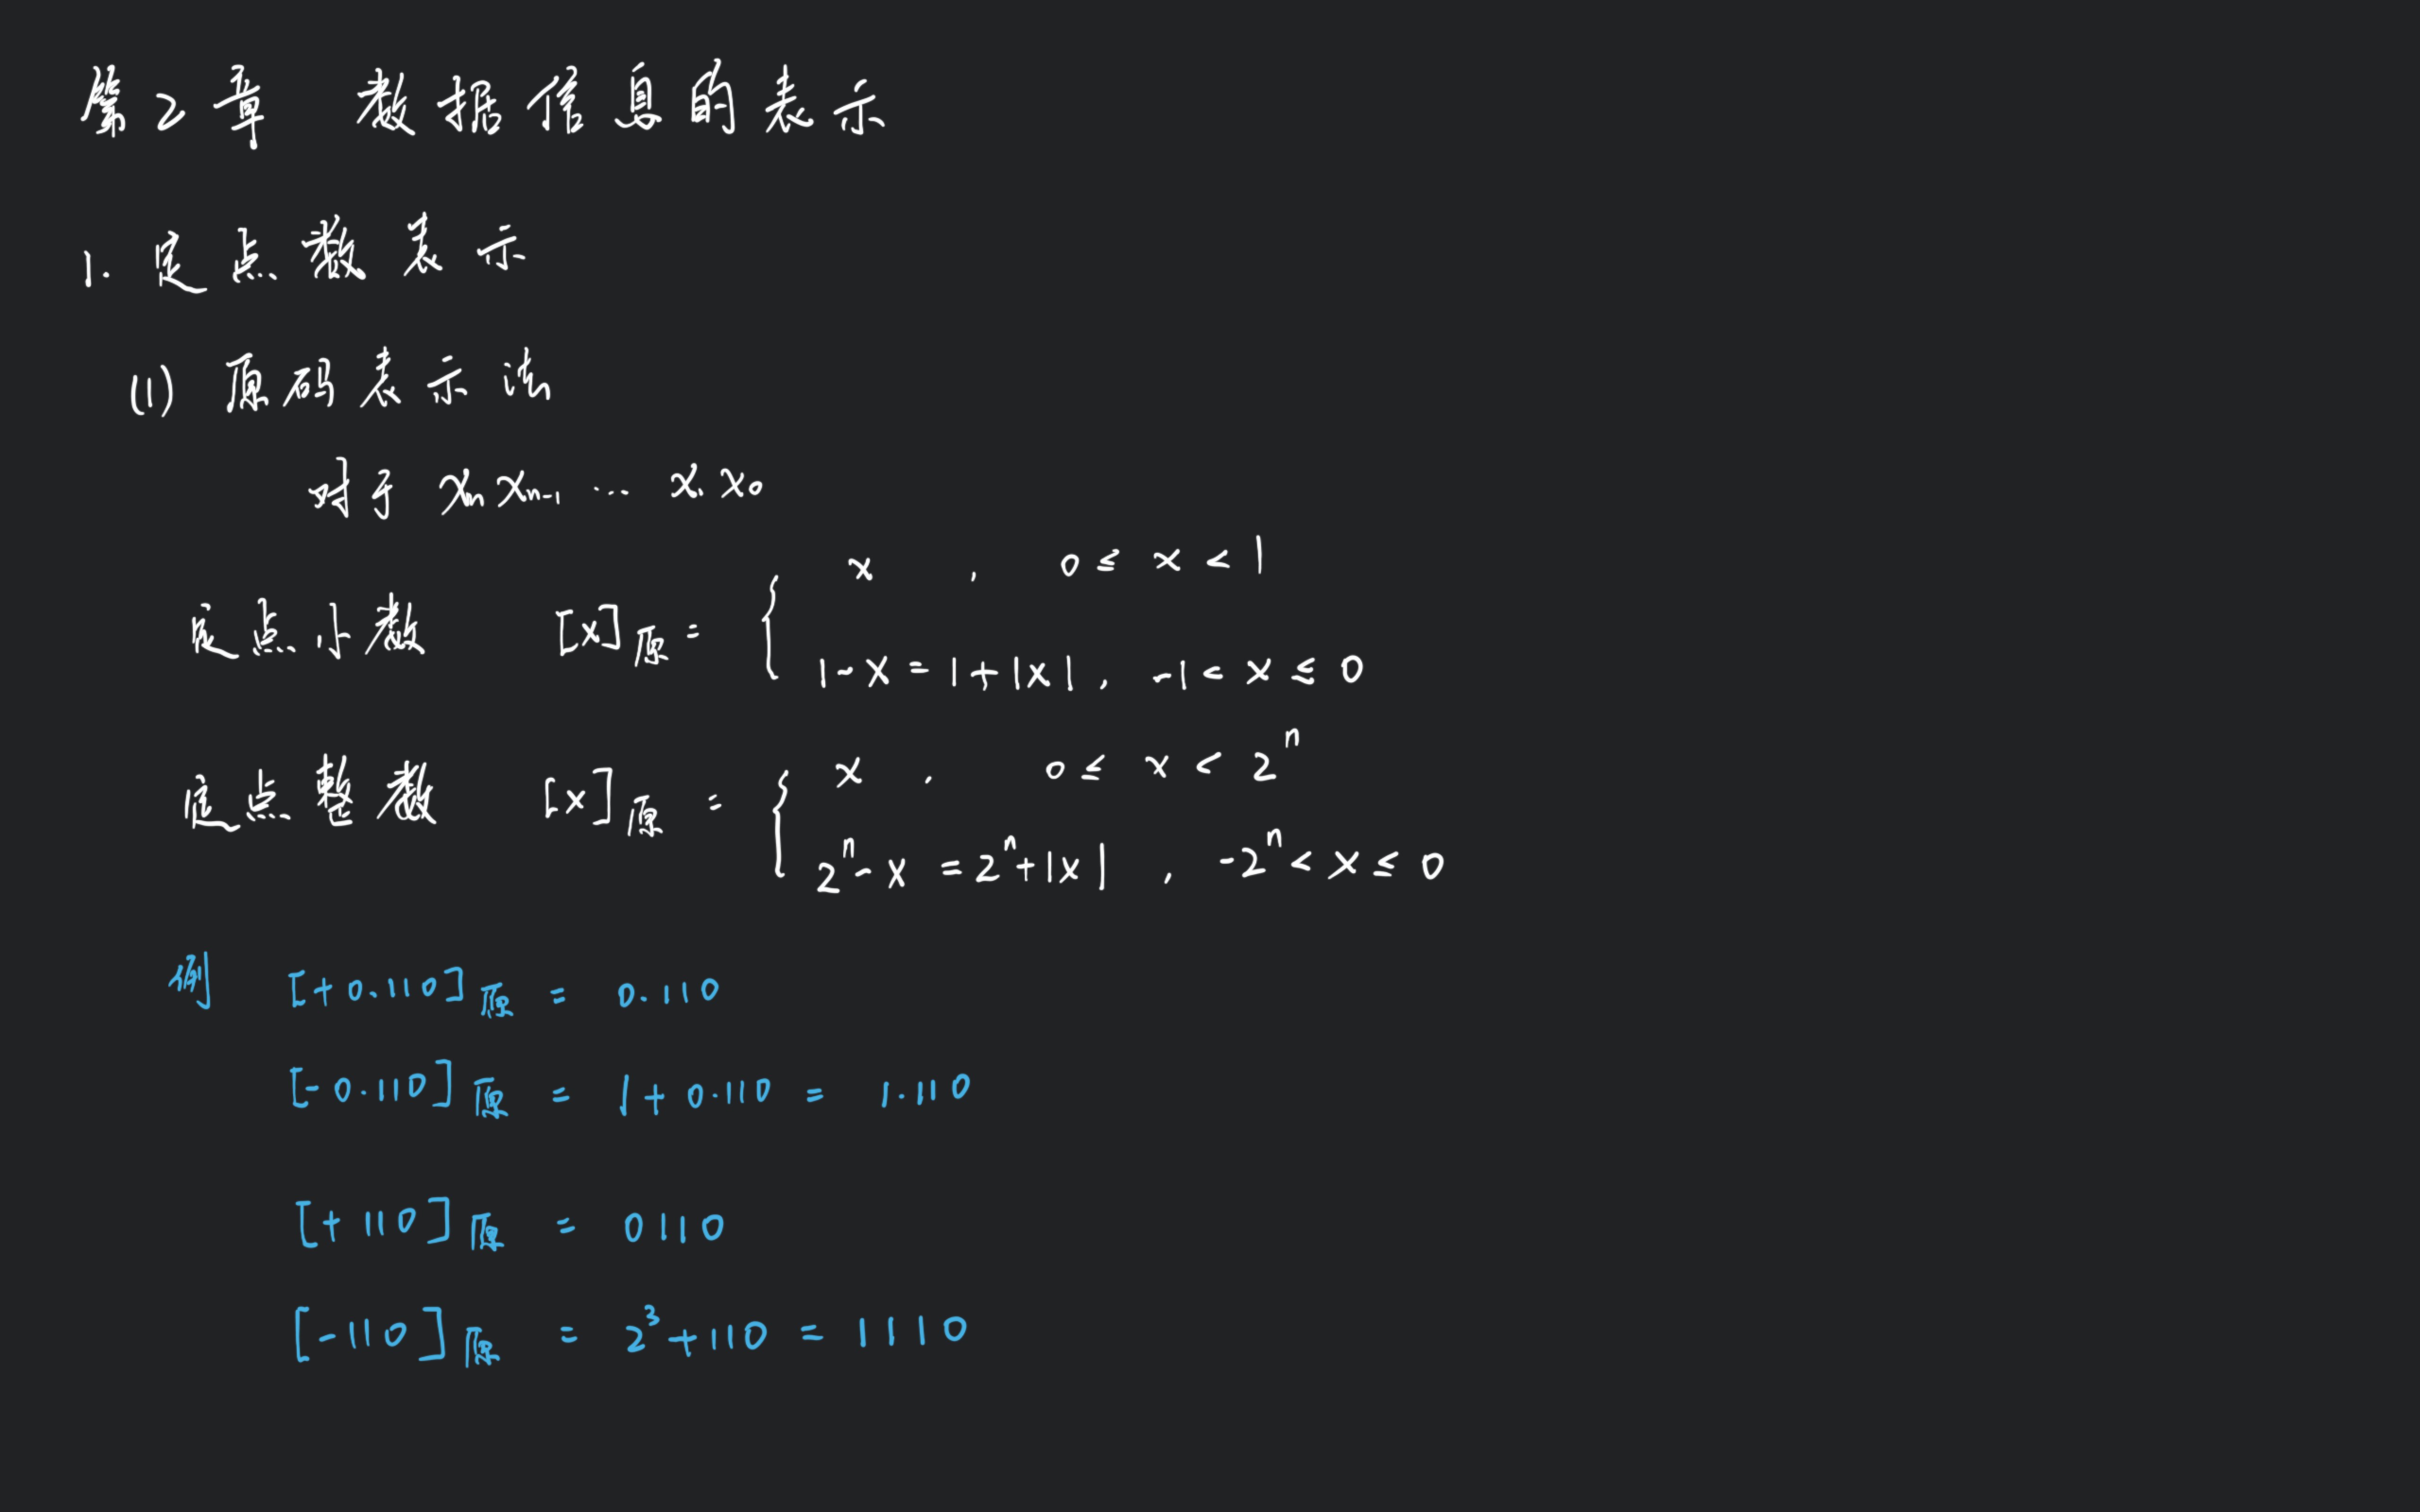 第2章 数据信息的表示
1. 定点数表示
(1) 原码表示法
对于 xₙxₙ₋₁ … x₁x₀
x , 0 ≤ x < 1
定点小数 [x]原 = {
1-x = 1+|x| , -1 < x ≤ 0
x , 0 ≤ x < 2ⁿ
定点整数 [x]原 = {
2ⁿ-x = 2ⁿ+|x| , -2ⁿ < x ≤ 0
例 [+0.110]原 = 0.110
[-0.110]原 = 1+0.110 = 1.110
[+110]原 = 0110
[-110]原 = 2³+110 = 1110